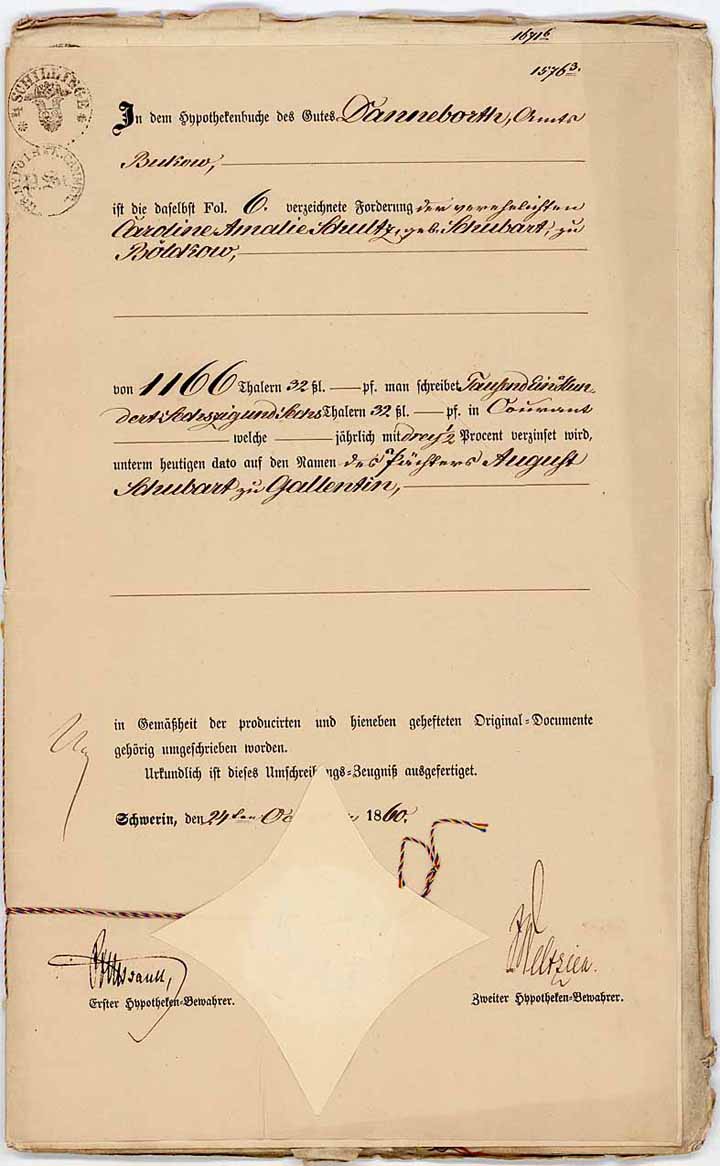 1671⁶
1576³.
4 SCHILLINGE
In dem Hypothekenbuche des Gutes Danneborth, Amts
Bukow,
ist die daselbst Fol. 6. verzeichnete Forderung der verehelichten
Caroline Amalie Schultz, geb. Schubart, zu
Bölckow,
von 1166 Thalern 32 ßl. — pf. man schreibet Tausend Ein Hun-
dert Sechszig und Sechs Thalern 32 ßl. — pf. in Courant
welche jährlich mit drey ½ Procent verzinset wird,
unterm heutigen dato auf den Namen des Pächters August
Schubart zu Gallentin,
in Gemäßheit der producirten und hieneben gehefteten Original-Documente
gehörig umgeschrieben worden.
Urkundlich ist dieses Umschreibungs-Zeugniß ausgefertigt.
Schwerin, den 24ten 1860.
Weltzien.
Erster Hypotheken-Bewahrer.
Zweiter Hypotheken-Bewahrer.